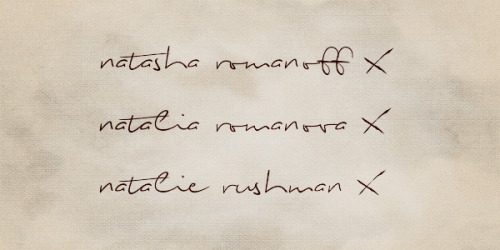 natasha romanoff X
natalia romanova X
natalie rushman X